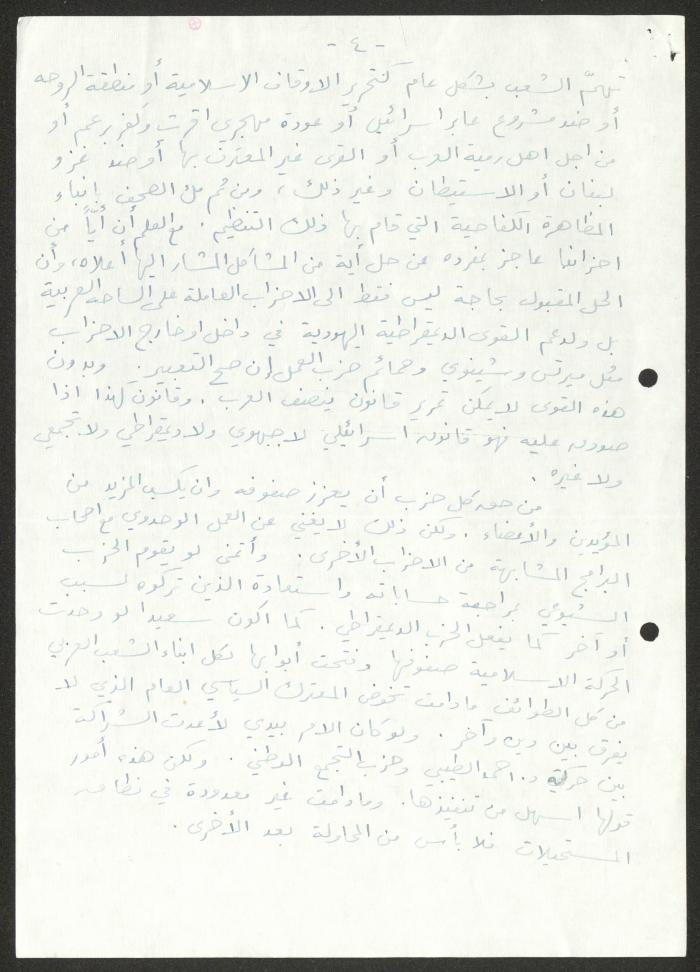 - ٤ -
تهمّ الشعب بشكل عام كتحرير الاوقاف الاسلامية أو منطقة الروحه
أو ضد مشروع عابر اسرائيل أو عودة مهجري اقرث وكفر برعم أو
من اجل اهل رمية العرب أو القرى غير المعترف بها أو ضد غزو
لبنان أو الاستيطان وغير ذلك، ومن ثم ملأ الصحف بانباء
المظاهرة الكفاحية التي قام بها ذلك التنظيم. مع العلم أن أيّاً من
احزابنا عاجز بمفرده عن حل أية من المشاكل المشار اليها أعلاه، وأن
الحل المقبول بحاجة ليس فقط الى الاحزاب العاملة على الساحه العربية
بل ولدعم القوى الديمقراطية اليهودية في داخل او خارج الاحزاب
مثل ميرتس وشينوي وحمائم حزب العمل إن صح التعبير. وبدون
هذه القوى لا يمكن تمرير قانون ينصف العرب. وقانون كهذا اذا
صودق عليه فهو قانون اسرائيلي لا جبهوي ولا ديمقراطي ولا تجمعي
ولا غيره.
من حق كل حزب أن يعزز صفوفه وان يكسب المزيد من
المؤيدين والأعضاء. ولكن ذلك لا يغني عن العمل الوحدوي مع اصحاب
البرامج المشابهة من الاحزاب الأخرى. وأتمنى لو يقوم الحزب
الشيوعي بمراجعة حساباته واستعادة الذين تركوه لسبب
أو آخر كما يفعل الحزب الديمقراطي. كما اكون سعيدا لو وحدت
الحركة الاسلامية صفوفها وفتحت أبوابها لكل ابناء الشعب العربي
من كل الطوائف ما دامت تخوض المعترك السياسي العام الذي لا
يفرق بين دين وآخر. ولو كان الامر بيدي لأعدت الشراكة
بين حركة د. احمد الطيبي وحزب التجمع الوطني. ولكن هذه أمور
قولها اسهل من تنفيذها. وما دامت غير معدودة في نطاق
المستحيلات فلا بأس من المحاولة بعد الأخرى.